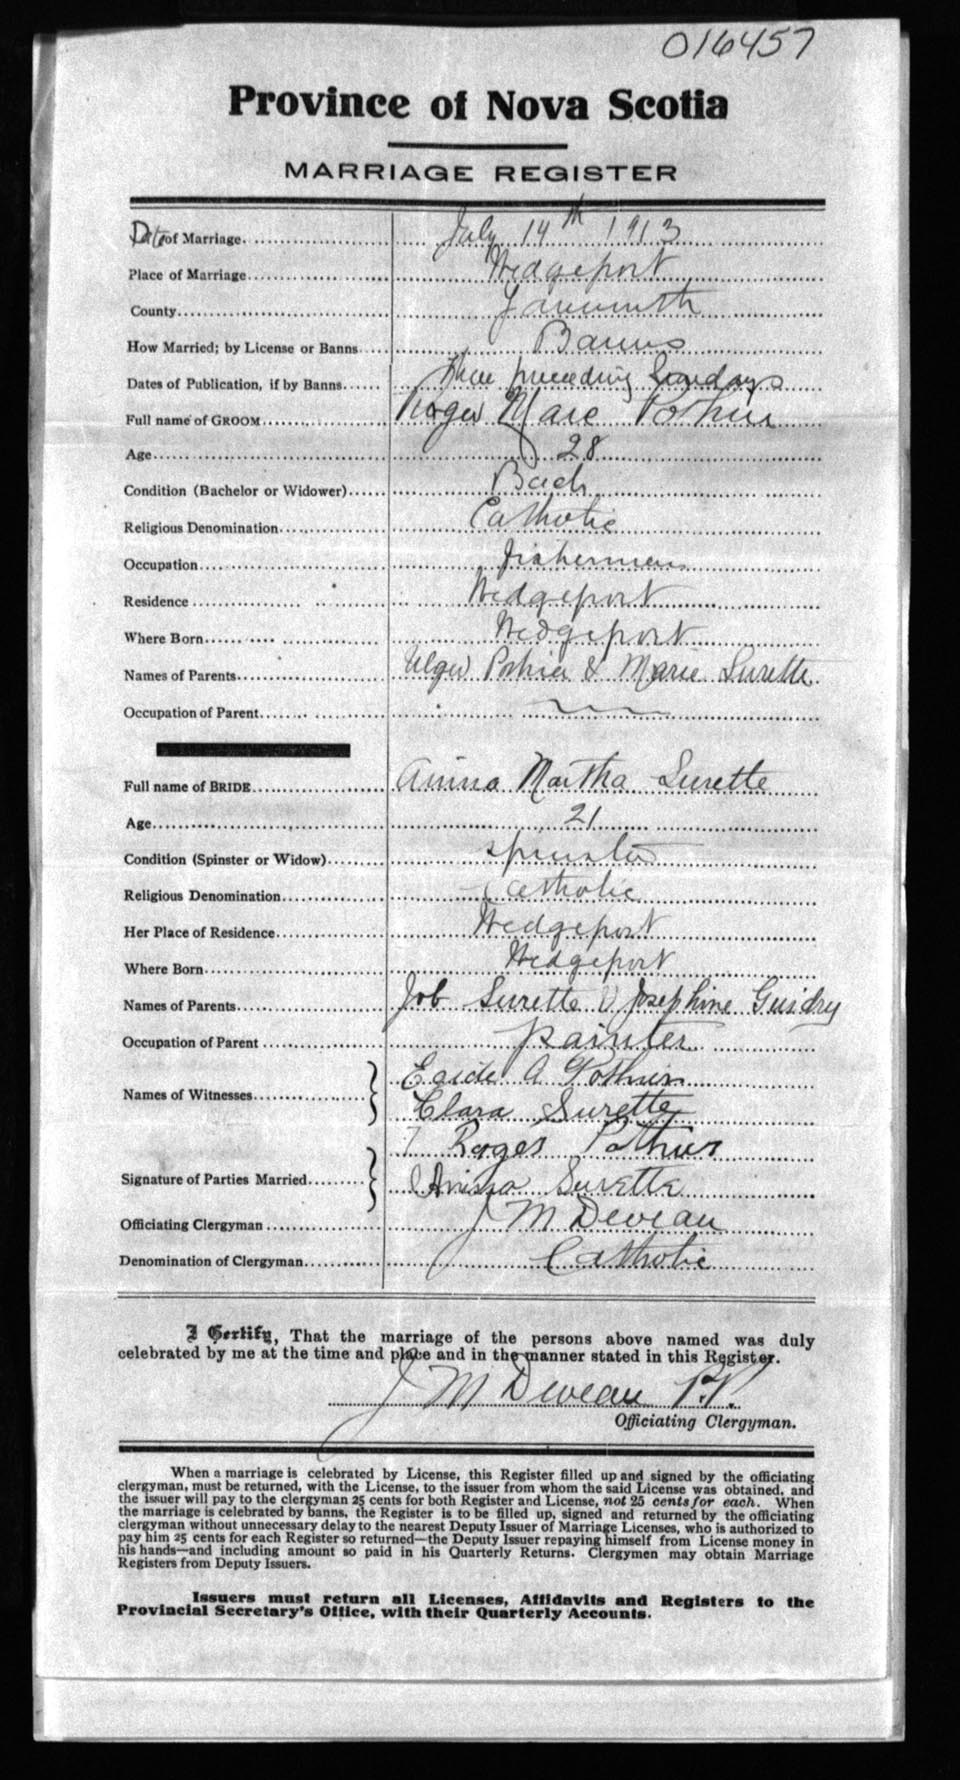 016457
Province of Nova Scotia
MARRIAGE REGISTER
Date of Marriage July 14th 1913
Place of Marriage Wedgeport
County Yarmouth
How Married; by License or Banns Banns
Dates of Publication, if by Banns three preceding Sundays
Full name of GROOM Roger Marc Pothier
Age 28
Condition (Bachelor or Widower) Bach
Religious Denomination Catholic
Occupation fisherman
Residence Wedgeport
Where Born Wedgeport
Names of Parents Pothier & Marie Surette
Occupation of Parent
Full name of BRIDE Martha Surette
Age 21
Condition (Spinster or Widow) spinster
Religious Denomination Catholic
Her Place of Residence Wedgeport
Where Born Wedgeport
Names of Parents Job Surette & Josephine Guidry
Occupation of Parent painter
Names of Witnesses A Pothier
Clara Surette
Signature of Parties Married Roger Pothier
Surette
Officiating Clergyman J M Deveau
Denomination of Clergyman Catholic
I Certify, That the marriage of the persons above named was duly
celebrated by me at the time and place and in the manner stated in this Register.
J M Deveau P.P.
Officiating Clergyman.
When a marriage is celebrated by License, this Register filled up and signed by the officiating
clergyman, must be returned, with the License, to the issuer from whom the said License was obtained, and
the issuer will pay to the clergyman 25 cents for both Register and License, not 25 cents for each. When
the marriage is celebrated by banns, the Register is to be filled up, signed and returned by the officiating
clergyman without unnecessary delay to the nearest Deputy Issuer of Marriage Licenses, who is authorized to
pay him 25 cents for each Register so returned—the Deputy Issuer repaying himself from License money in
his hands—and including amount so paid in his Quarterly Returns. Clergymen may obtain Marriage
Registers from Deputy Issuers.
Issuers must return all Licenses, Affidavits and Registers to the
Provincial Secretary's Office, with their Quarterly Accounts.